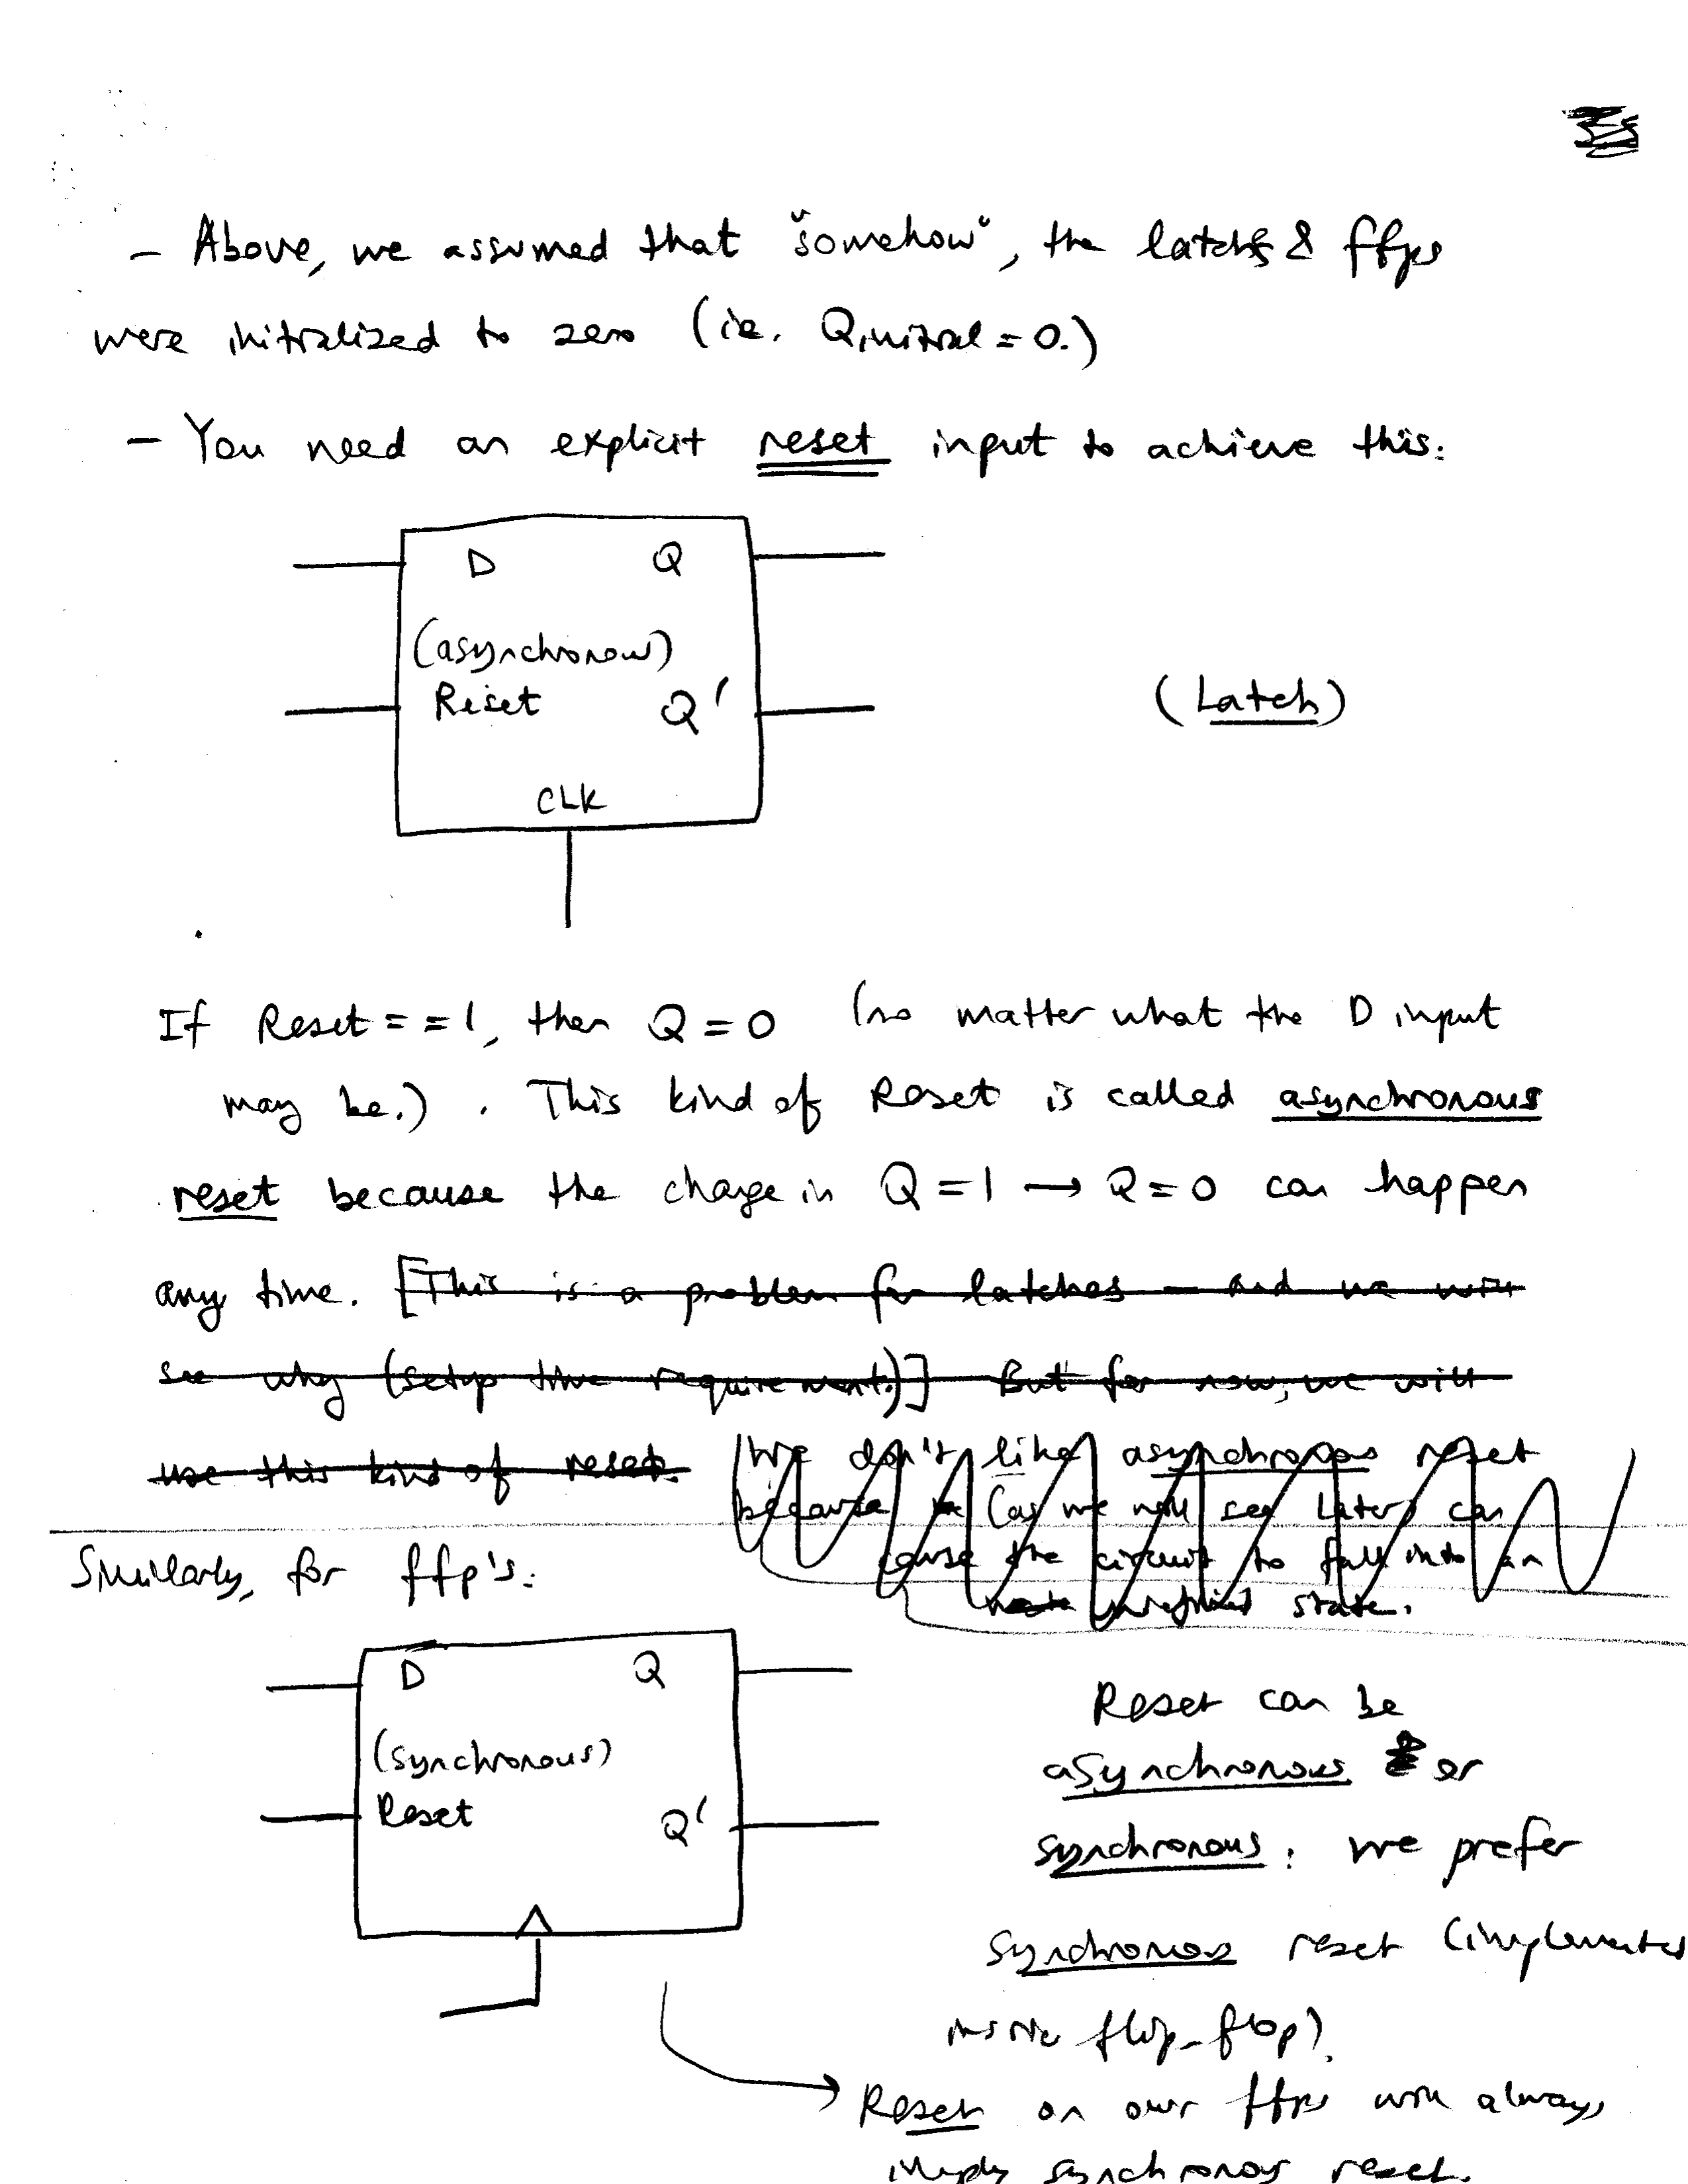 - Above, we assumed that "somehow", the latches & ffps
were initialized to zero (ie. Qinitial = 0.)
- You need an explicit reset input to achieve this:
D Q
(asynchronous)
Reset Q'
(Latch)
CLK
If Reset == 1, then Q = 0 (no matter what the D input
may be.) . This kind of Reset is called asynchronous
reset because the change in Q = 1 → Q = 0 can happen
any time. [This is a problem for latches - and we will
see why (setup time requirement.)] But for now, we will
use this kind of reset. We don't like asynchronous reset
because (as we will see later) can
cause the circuit to fall into an
undefined state.
Similarly, for ffp's:
D Q
(synchronous)
Reset Q'
Reset can be
asynchronous or
synchronous: we prefer
synchronous reset (implemented
inside flip-flop).
Reset on our ffps will always
imply synchronous reset.